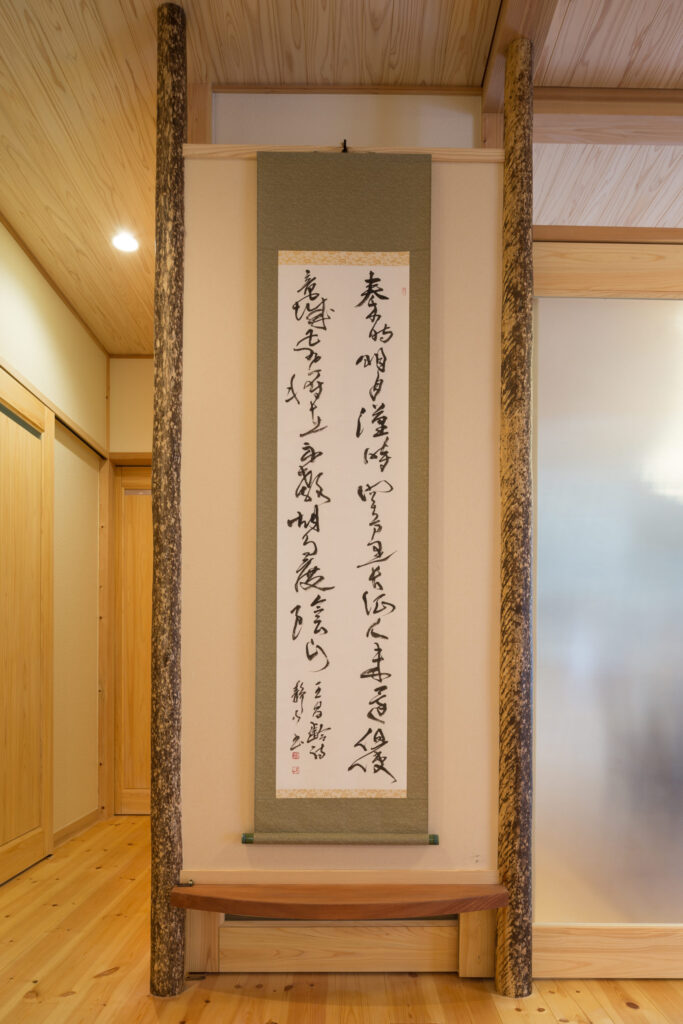 秦時明月漢時関万里長征人未還但使
竜城飛将在不教胡馬度陰山
王昌齢詩